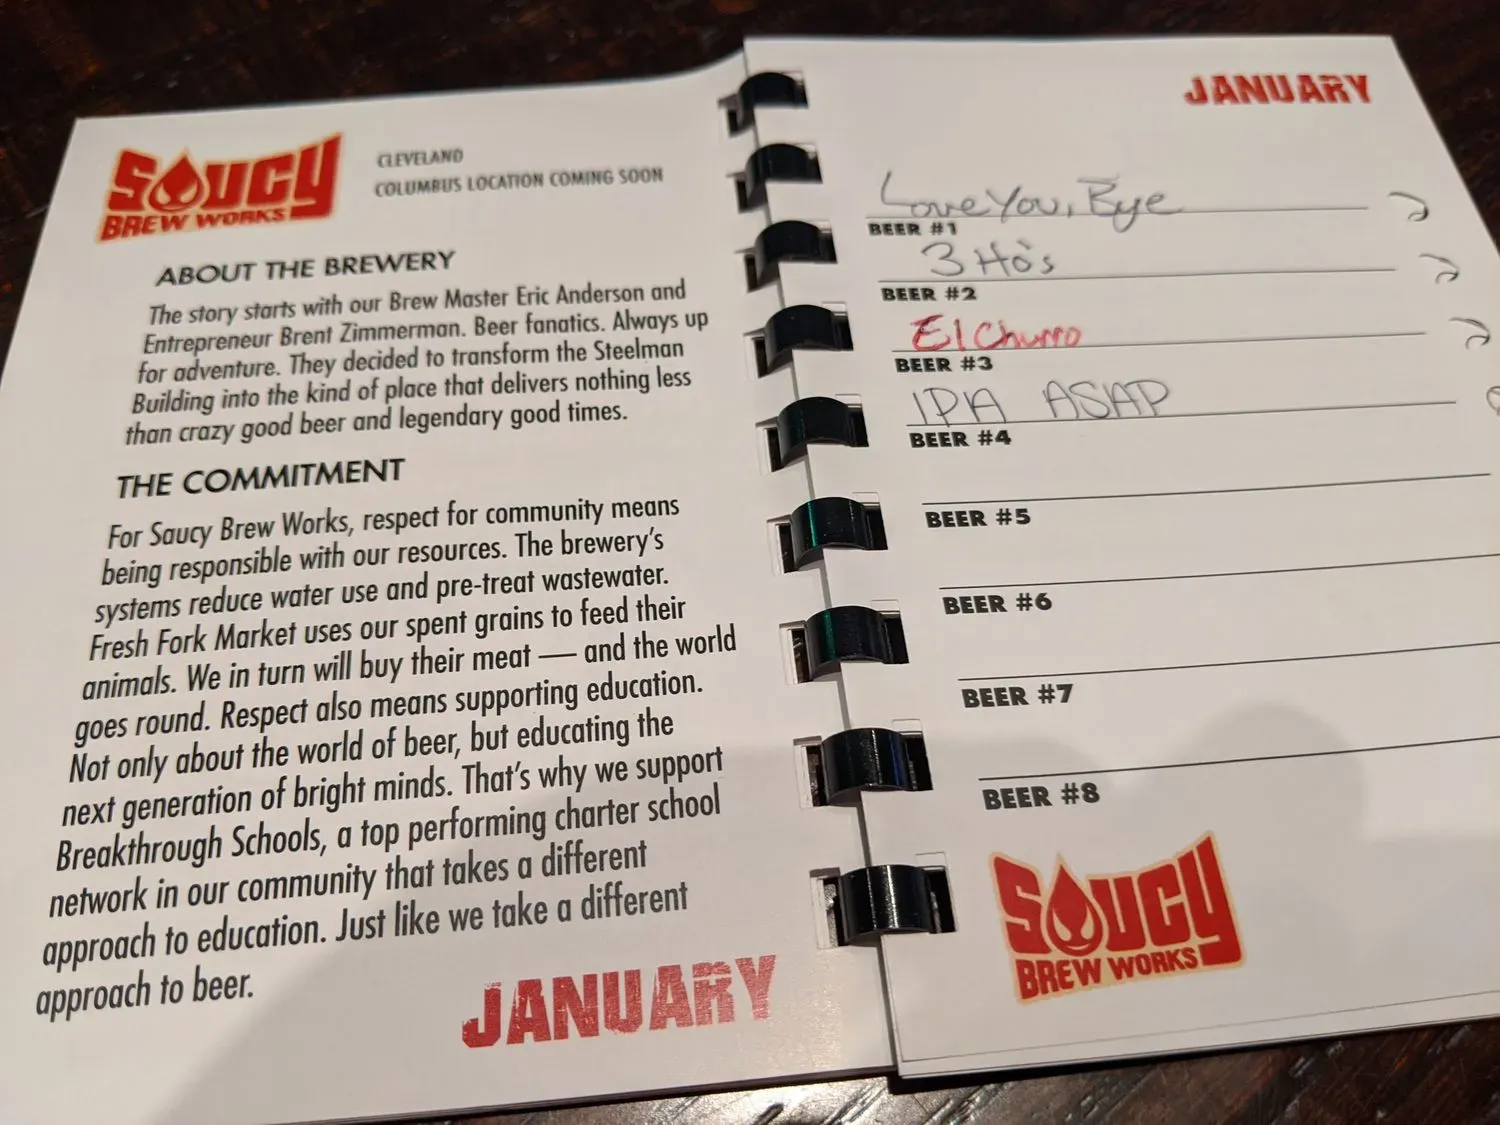 SAUCY
BREW WORKS
CLEVELAND
COLUMBUS LOCATION COMING SOON
ABOUT THE BREWERY
The story starts with our Brew Master Eric Anderson and
Entrepreneur Brent Zimmerman. Beer fanatics. Always up
for adventure. They decided to transform the Steelman
Building into the kind of place that delivers nothing less
than crazy good beer and legendary good times.
THE COMMITMENT
For Saucy Brew Works, respect for community means
being responsible with our resources. The brewery's
systems reduce water use and pre-treat wastewater.
Fresh Fork Market uses our spent grains to feed their
animals. We in turn will buy their meat — and the world
goes round. Respect also means supporting education.
Not only about the world of beer, but educating the
next generation of bright minds. That's why we support
Breakthrough Schools, a top performing charter school
network in our community that takes a different
approach to education. Just like we take a different
approach to beer.
JANUARY
JANUARY
Love You, Bye
BEER #1
3 Ho's
BEER #2
El Churro
BEER #3
IPA ASAP
BEER #4
BEER #5
BEER #6
BEER #7
BEER #8
SAUCY
BREW WORKS